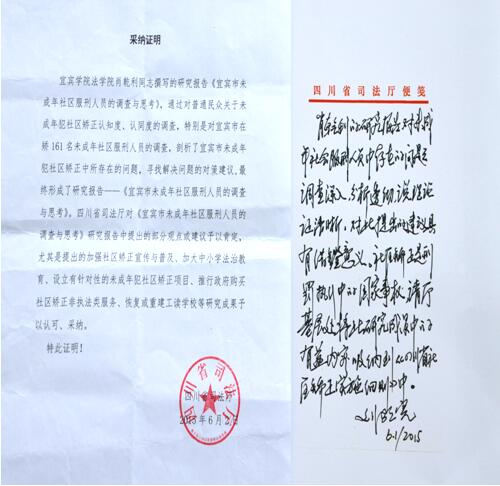 采纳证明
宜宾学院法学院肖乾利同志撰写的研究报告《宜宾市未
成年社区服刑人员的调查与思考》，通过对普通民众关于未
成年犯社区矫正认知度、认同度的调查，特别是对宜宾市在
矫 161 名未成年社区服刑人员的调查，剖析了宜宾市未成年
犯社区矫正中所存在的问题，寻找解决问题的对策建议，最
终形成了研究报告——《宜宾市未成年社区服刑人员的调查
与思考》。四川省司法厅对《宜宾市未成年社区服刑人员的
调查与思考》研究报告中提出的部分观点或建议予以肯定，
尤其是提出的加强社区矫正宣传与普及、加大中小学法治教
育、设立有针对性的未成年犯社区矫正项目、推行政府购买
社区矫正非执法类服务、恢复或重建工读学校等研究成果予
以认可、采纳。
特此证明！
四川省司法厅
2015 年 6 月 2 日
四川省司法厅便笺
肖乾利的研究报告对未成
年社会服刑人员中存在的问题
调查深入，分析透彻，说理论
证清晰，对此提出的建议具
有借鉴意义。社区矫正是刑
罚执行中的国家事权，请厅
基层处将此研究成果中的
有益内容吸纳到《四川省社
区矫正实施细则》中。
6.1/2015